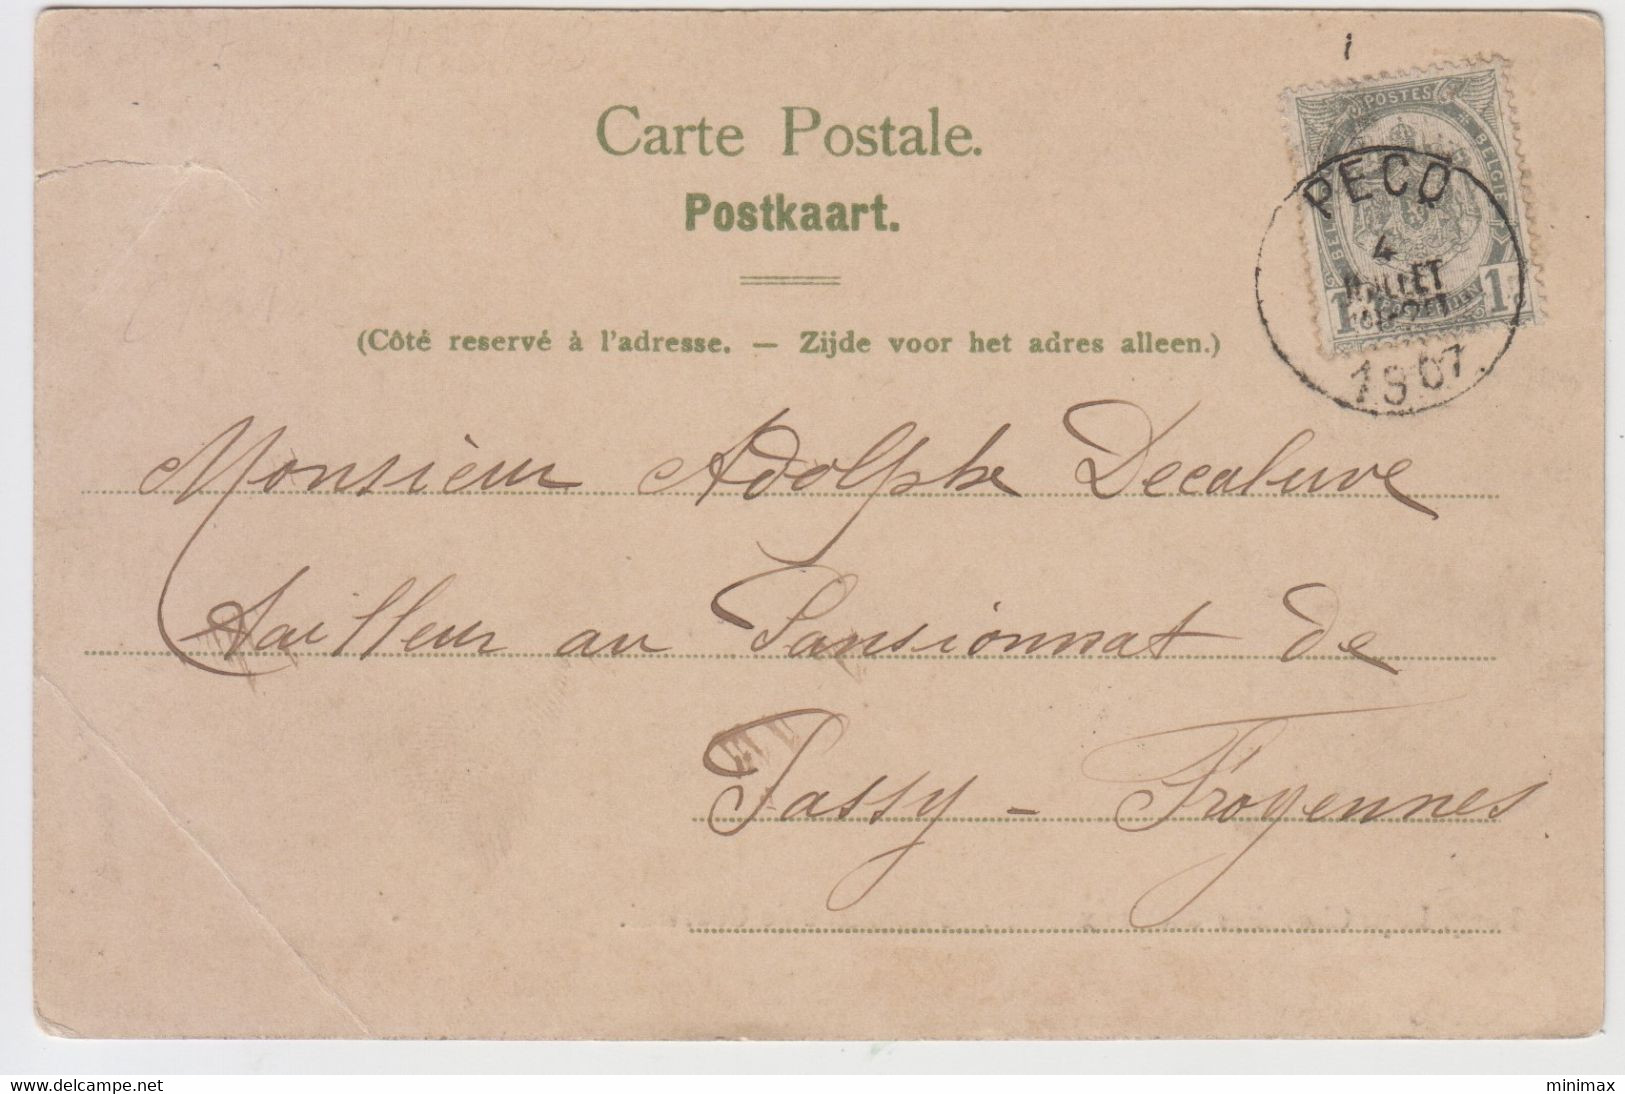 Carte Postale.
Postkaart.
(Côté reservé à l'adresse. — Zijde voor het adres alleen.)
POSTES
BELGIE
1 1
PECQ
4
JUILLET
1907
Monsieur Adolphe Decaluwe
Tailleur au Pansionnat de
Passy - Froyennes
delcampe.net
minimax